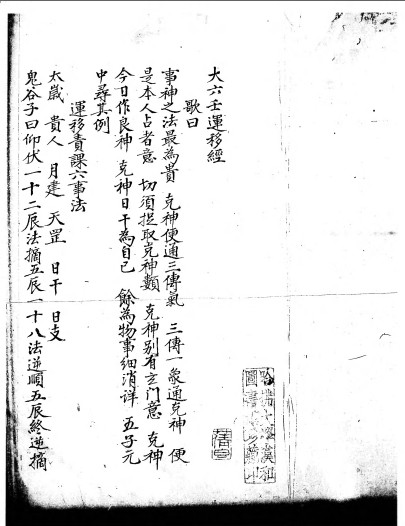 大六壬運移經
歌曰
事神之法最為貴 克神便通三傳氣 三傳一象通克神 便
是本人占者意 切須捉取克神類 克神别有玄門意 克神
今日作良神 克神日干為自己 餘為物事細消详 五子元
中尋其例
運移責課六事法
太歲 貴人 月建 天罡 日干 日支
鬼谷子曰仰伏一十二辰法摘五辰一十八法逆順五辰終逆摘